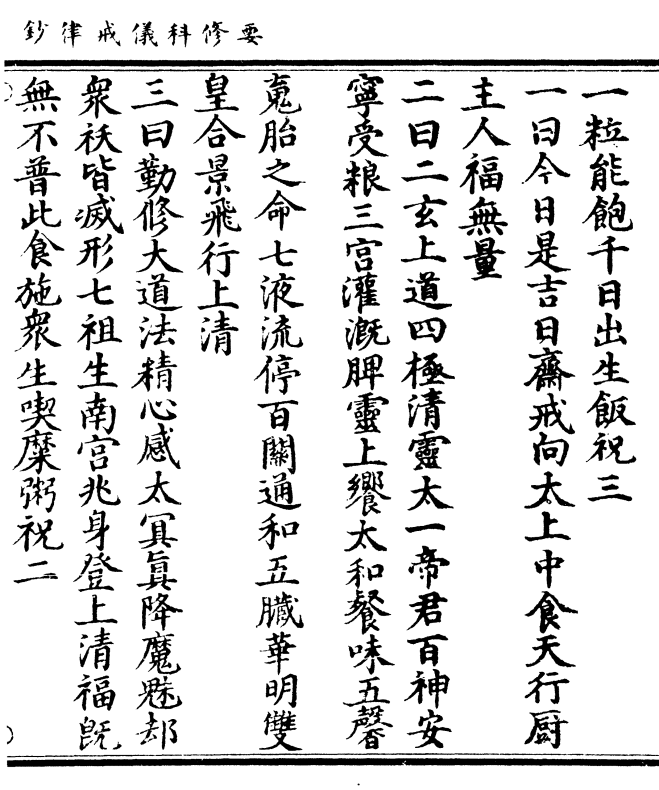 要修科儀戒律鈔
一粒能飽千日出生飯祝三
一曰今日是吉日齋戒向太上中食天行厨
主人福無量
二曰二玄上道四極清靈太一帝君百神安
寧受粮三宮灌溉脾靈上饗太和餐味五馨
魂胎之命七液流停百關通和五臟華明雙
皇合景飛行上清
三曰勤修大道法精心感太冥眞降魔魅却
衆祅皆滅形七祖生南宮兆身登上清福旣
無不普此食施衆生喫糜粥祝二